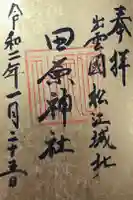 奉拝
出雲国松江城北
田原神社
令和二年一月二十五日